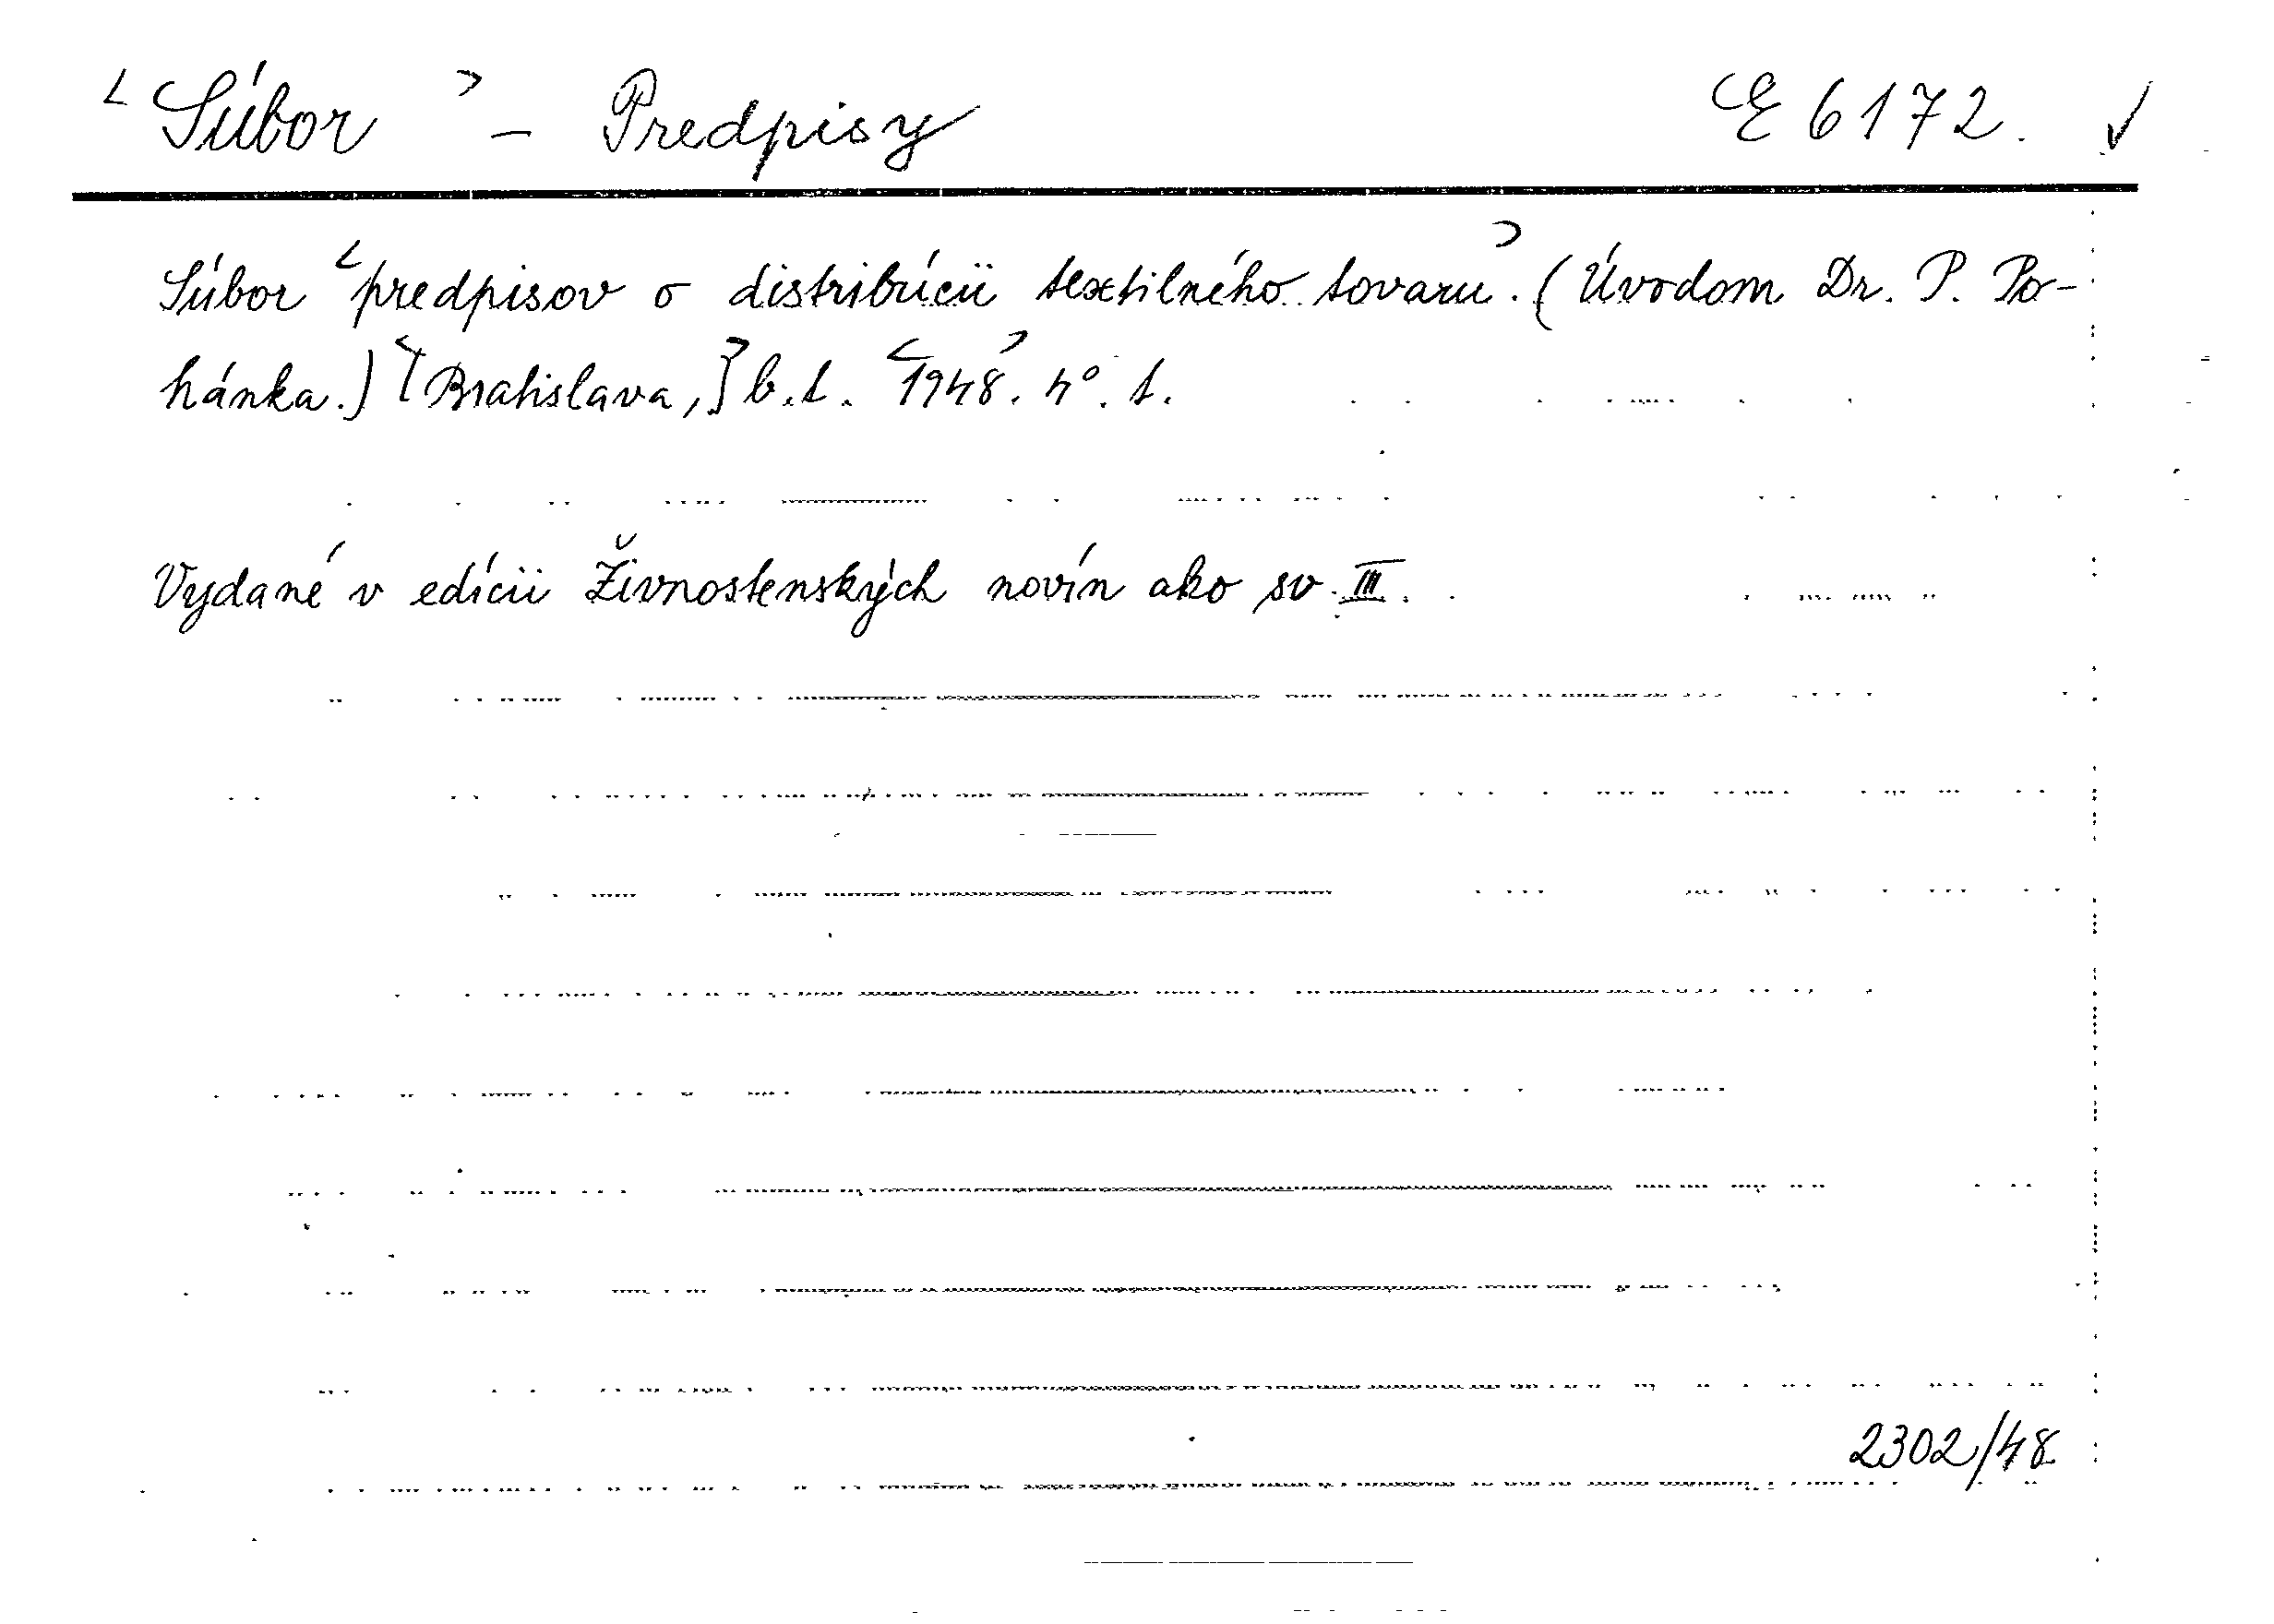 <Súbor> - Predpisy E 6172. ✓
Súbor <predpisov o distribúcii textilného tovaru>. (Úvodom Dr. P. Po-
hánka.) <[Bratislava,]> b.t. <1948>. 4°. 1.
Vydané v edícii Živnostenských novín ako sv. III.
2302/48